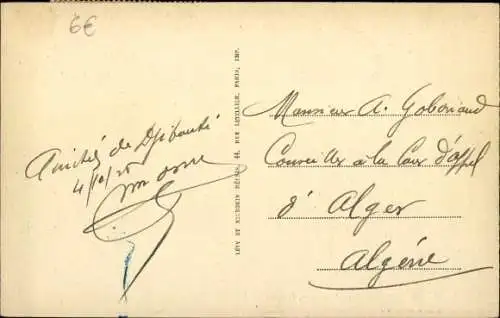 6€
Amitiés de Djibouti
4/10/25
LÉVY ET NEURDEIN RÉUNIS, 44, RUE LETELLIER, PARIS, IMP.
Monsieur A. Goboriaud
Conseiller à la Cour d'appel
d'Alger
Algérie